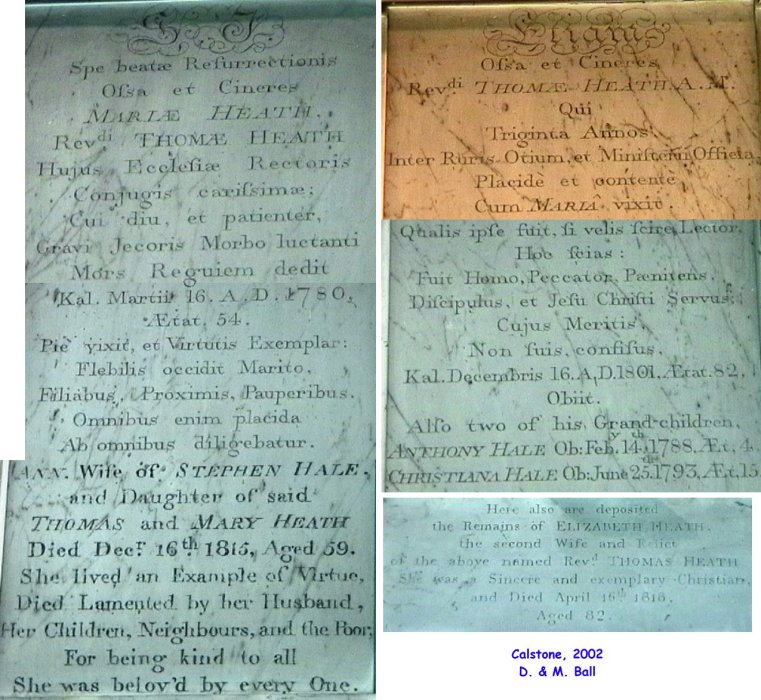 S. I.
Spe beatæ Reſurrectionis
Oſsa et Cineres
MARIÆ HEATH.
Revdi THOMÆ HEATH
Hujus Eccleſiæ Rectoris
Conjugis cariſsimæ;
Cui diu, et patienter,
Gravi Jecoris Morbo luctanti
Mors Requiem dedit
Kal. Martii 16. A. D. 1780.
Ætat. 54.
Piè vixit, et Virtutis Exemplar:
Flebilis occidit Marito,
Filiabus, Proximis, Pauperibus.
Omnibus enim placida
Ab omnibus diligebatur.
ANN. Wife of STEPHEN HALE,
and Daughter of said
THOMAS and MARY HEATH
Died Decr. 16th 1815, Aged 59.
She lived an Example of Virtue,
Died Lamented by her Husband,
Her Children, Neighbours, and the Poor,
For being kind to all
She was belov'd by every One.
Etiam
Oſsa et Cineres
Revdi THOMÆ HEATH. A. M.
Qui
Triginta Annos
Inter Ruris Otium, et Miniſterii Officia,
Placidè et contente
Cum MARIÂ vixit.
Qualis ipſe fuit, ſi velis ſcire, Lector,
Hoc ſcias:
Fuit Homo, Peccator, Pænitens,
Diſcipulus, et Jeſu Chriſti Servus;
Cujus Meritis,
Non ſuis, confiſus,
Kal. Decembris 16. A.D. 1801. Ætat. 82.
Obiit.
Alſo two of his Grand-children,
ANTHONY HALE Ob: Feb. 14th, 1788. Æt. 4.
CHRISTIANA HALE Ob: June 25th 1793, Æt. 15
Here also are deposited
the Remains of ELIZABETH HEATH.
the second Wife and Relict
of the above named Revd. THOMAS HEATH
She was a Sincere and exemplary Christian,
and Died April 16th 1818.
Aged 82.
Calstone, 2002
D. & M. Ball